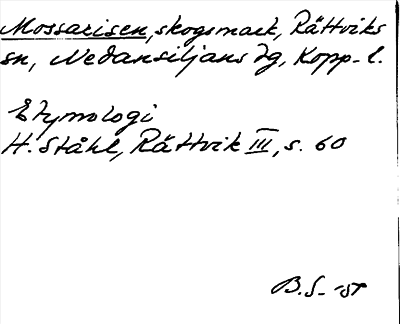 Mossarisen, skogsmark, Rättviks
sn, Nedansiljans dg, Kopp. l.
Etymologi
H. Ståhl, Rättvik III, s. 60
B.S-st